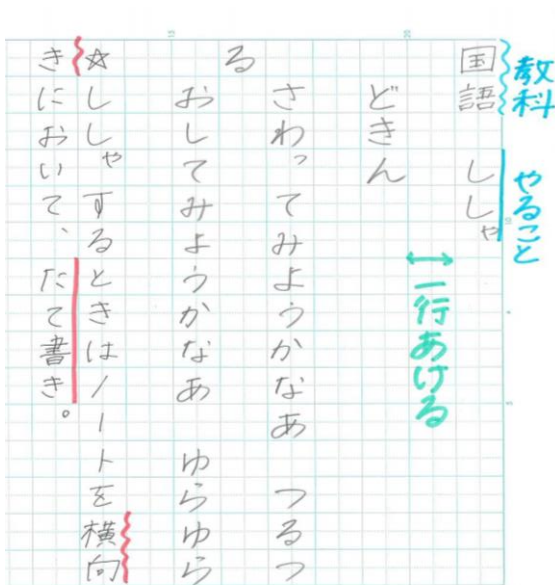 教科
やること
国語 ししゃ
一行あける
どきん
さわってみようかなあ つるつ
る
おしてみようかなあ ゆらゆら
☆ししゃするときはノートを横向
きにおいて、たて書き。